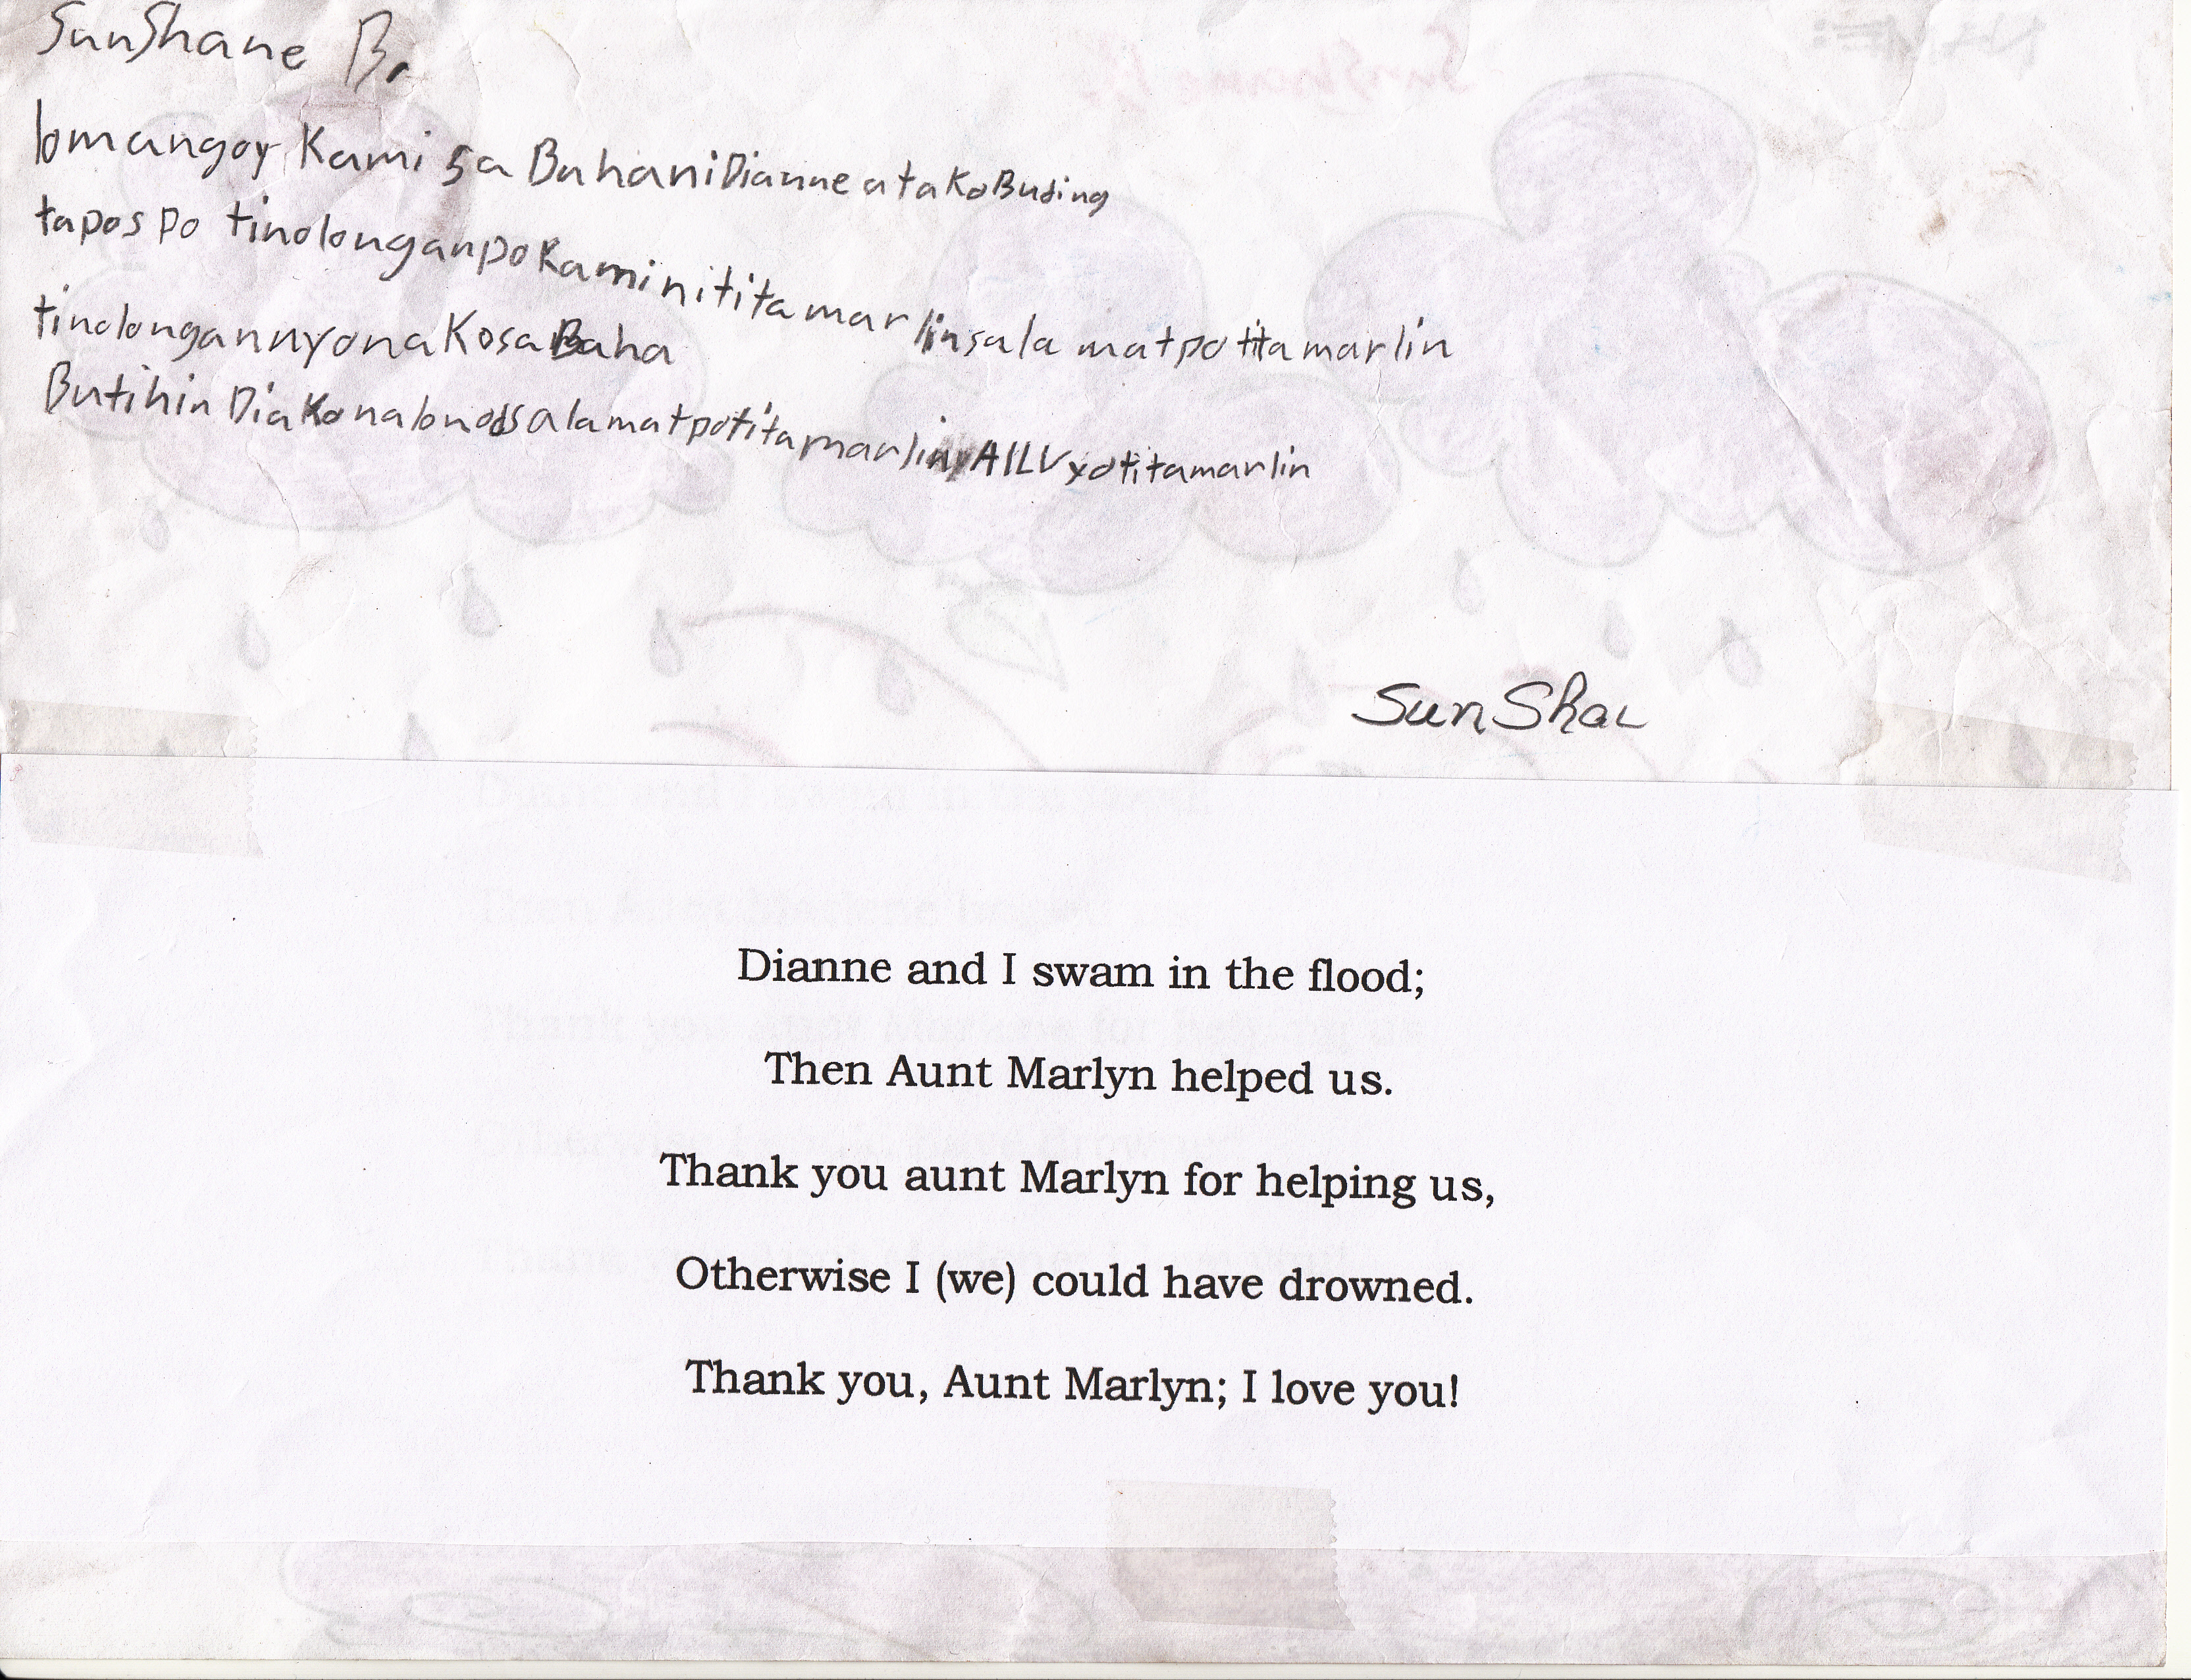 SunShane B.
lomangoy Kami sa BahaniDianne atakoBusing
tapos po tinolonganpoKaminititamarlinsalamatpotitamarlin
tinolongannyonaKosaBaha
ButihinDiaKonalonodsalamatpotitamarlinAILVyotitamarlin
SunSha
Dianne and I swam in the flood;
Then Aunt Marlyn helped us.
Thank you aunt Marlyn for helping us,
Otherwise I (we) could have drowned.
Thank you, Aunt Marlyn; I love you!